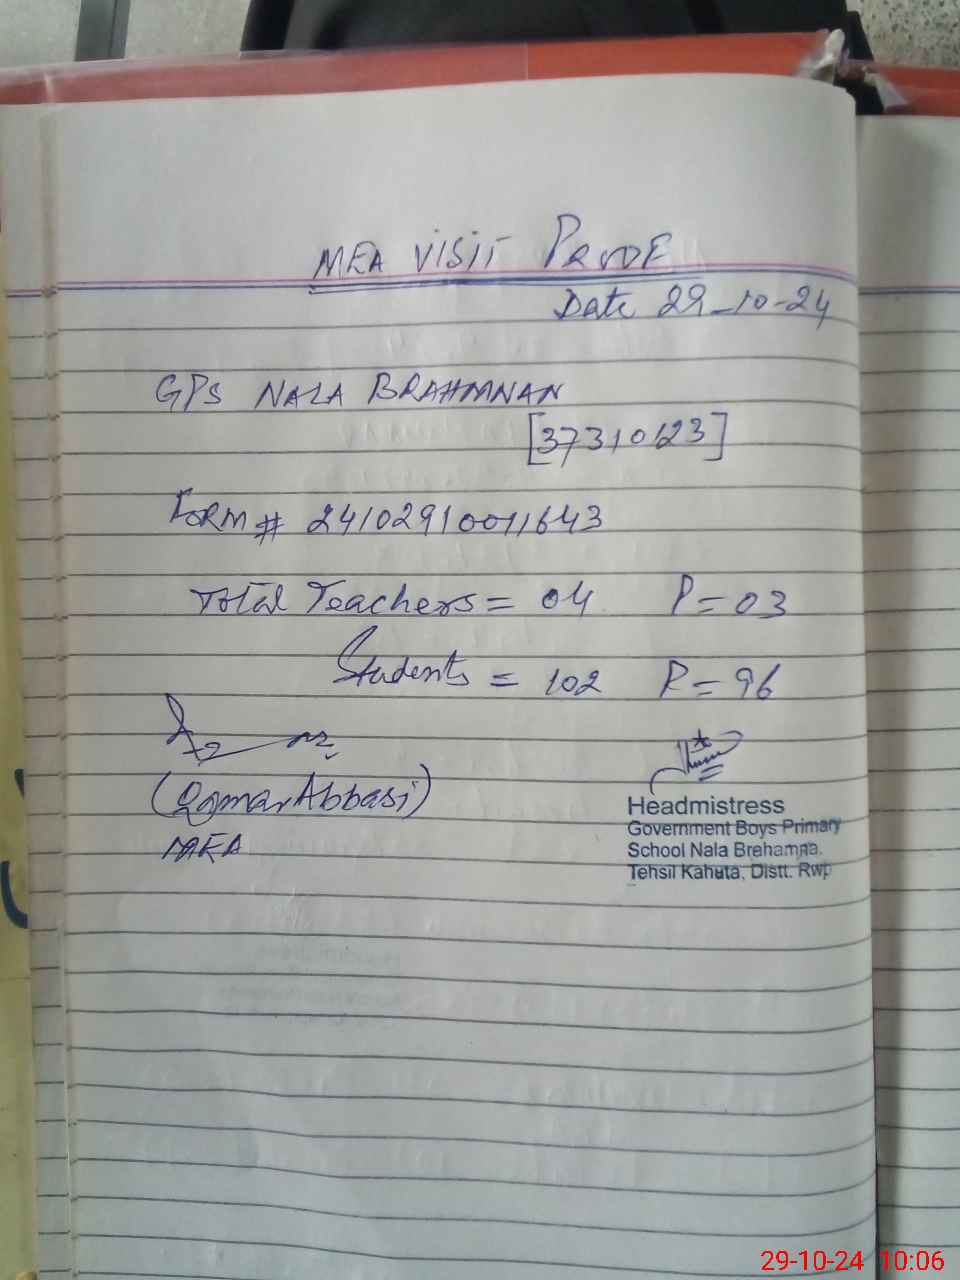 MEA VISIT PROOF
Date 29-10-24
GPS NALA BRAHMNAN
[37310123]
FORM # 2410291001643
Total Teachers = 04 P = 03
Students = 102 P = 96
(Qamar Abbasi)
MEA
Headmistress
Government Boys Primary
School Nala Brehamna.
Tehsil Kahuta, Distt. Rwp
29-10-24 10:06